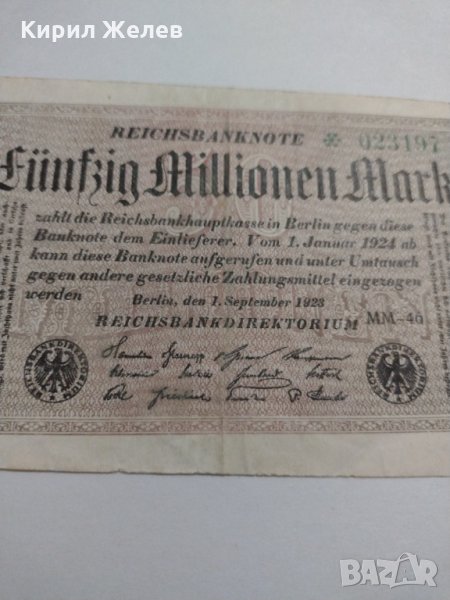 Кирил Желев
REICHSBANKNOTE * 023197
Fünfzig Millionen Mark
zahlt die Reichsbankhauptkasse in Berlin gegen diese
Banknote dem Einlieferer. Vom 1. Januar 1924 ab
kann diese Banknote aufgerufen und unter Umtausch
gegen andere gesetzliche Zahlungsmittel eingezogen
werden
Berlin, den 1. September 1923
REICHSBANKDIREKTORIUM MM-46
REICHSBANKDIREKTORIUM
REICHSBANKDIREKTORIUM
BAZAR